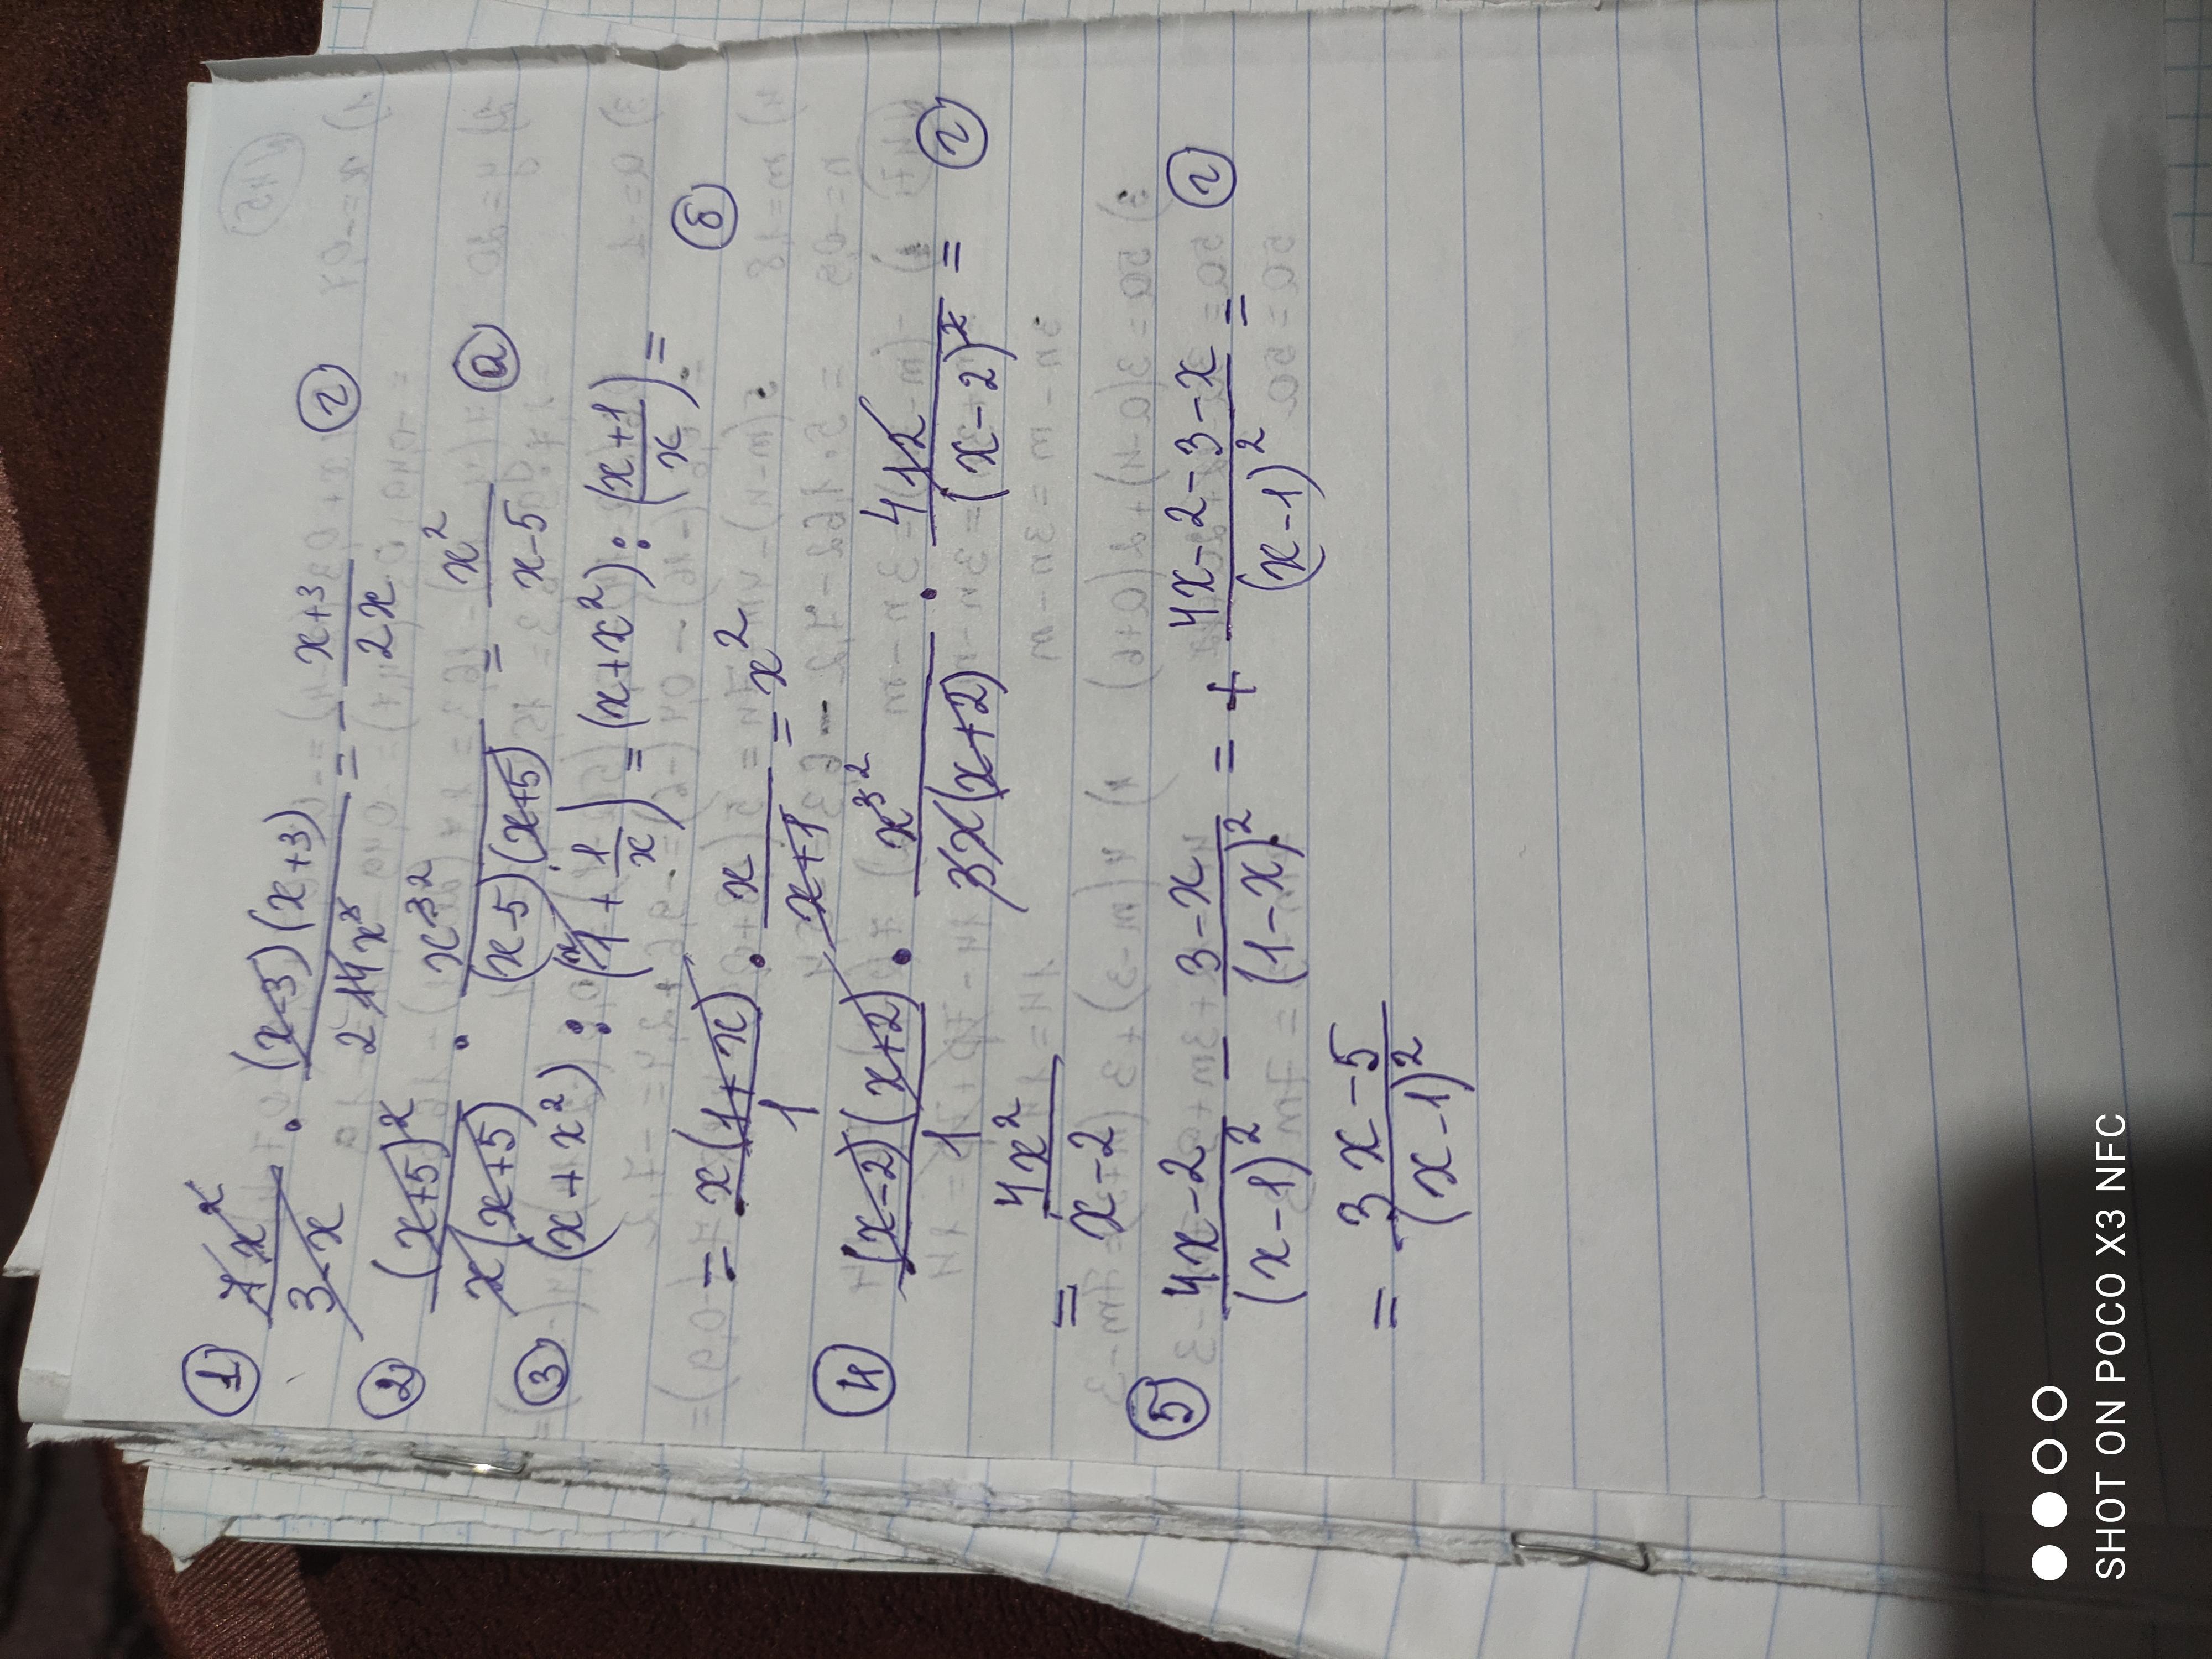 ① 7x²/(3-x) · (x-3)(x+3)/(2 14x³) = - (x+3)/(2x) ⓖ
② (x+5)²/(x(x+5)) · x³ ²/((x-5)(x+5)) = x²/(x-5) ⓐ
③ (x+x²) : (1+1/x) = (x+x²) : ((x+1)/x) =
= x(1+x)/1 · x/(x+1) = x² ⓑ
④ (x-2)(x+2)/1 · x³ ²/(3x(x+2)) · 4 12/(x-2)² = ⓖ
= 4x²/(x-2)
⑤ (4x-2)/(x-1)² - (3-x)/(1-x)² = + (4x-2-3-x)/(x-1)² = ⓖ
= (3x-5)/(x-1)²
SHOT ON POCO X3 NFC